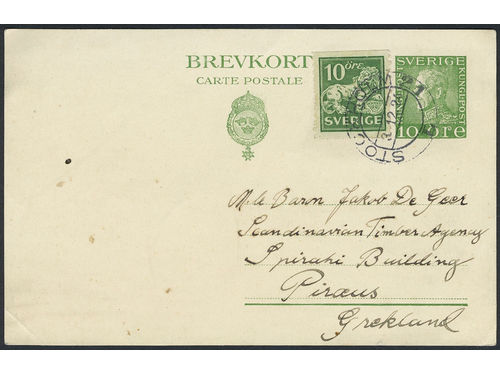 BREVKORT
CARTE POSTALE
10 ÖRE
SVERIGE
SVERIGE
KUNGL. POST
10 ÖRE
STOCKHOLM
Baron Jakob De Geer
Scandinavian Timber Agency
Spiraki Building
Piræus
Grekland